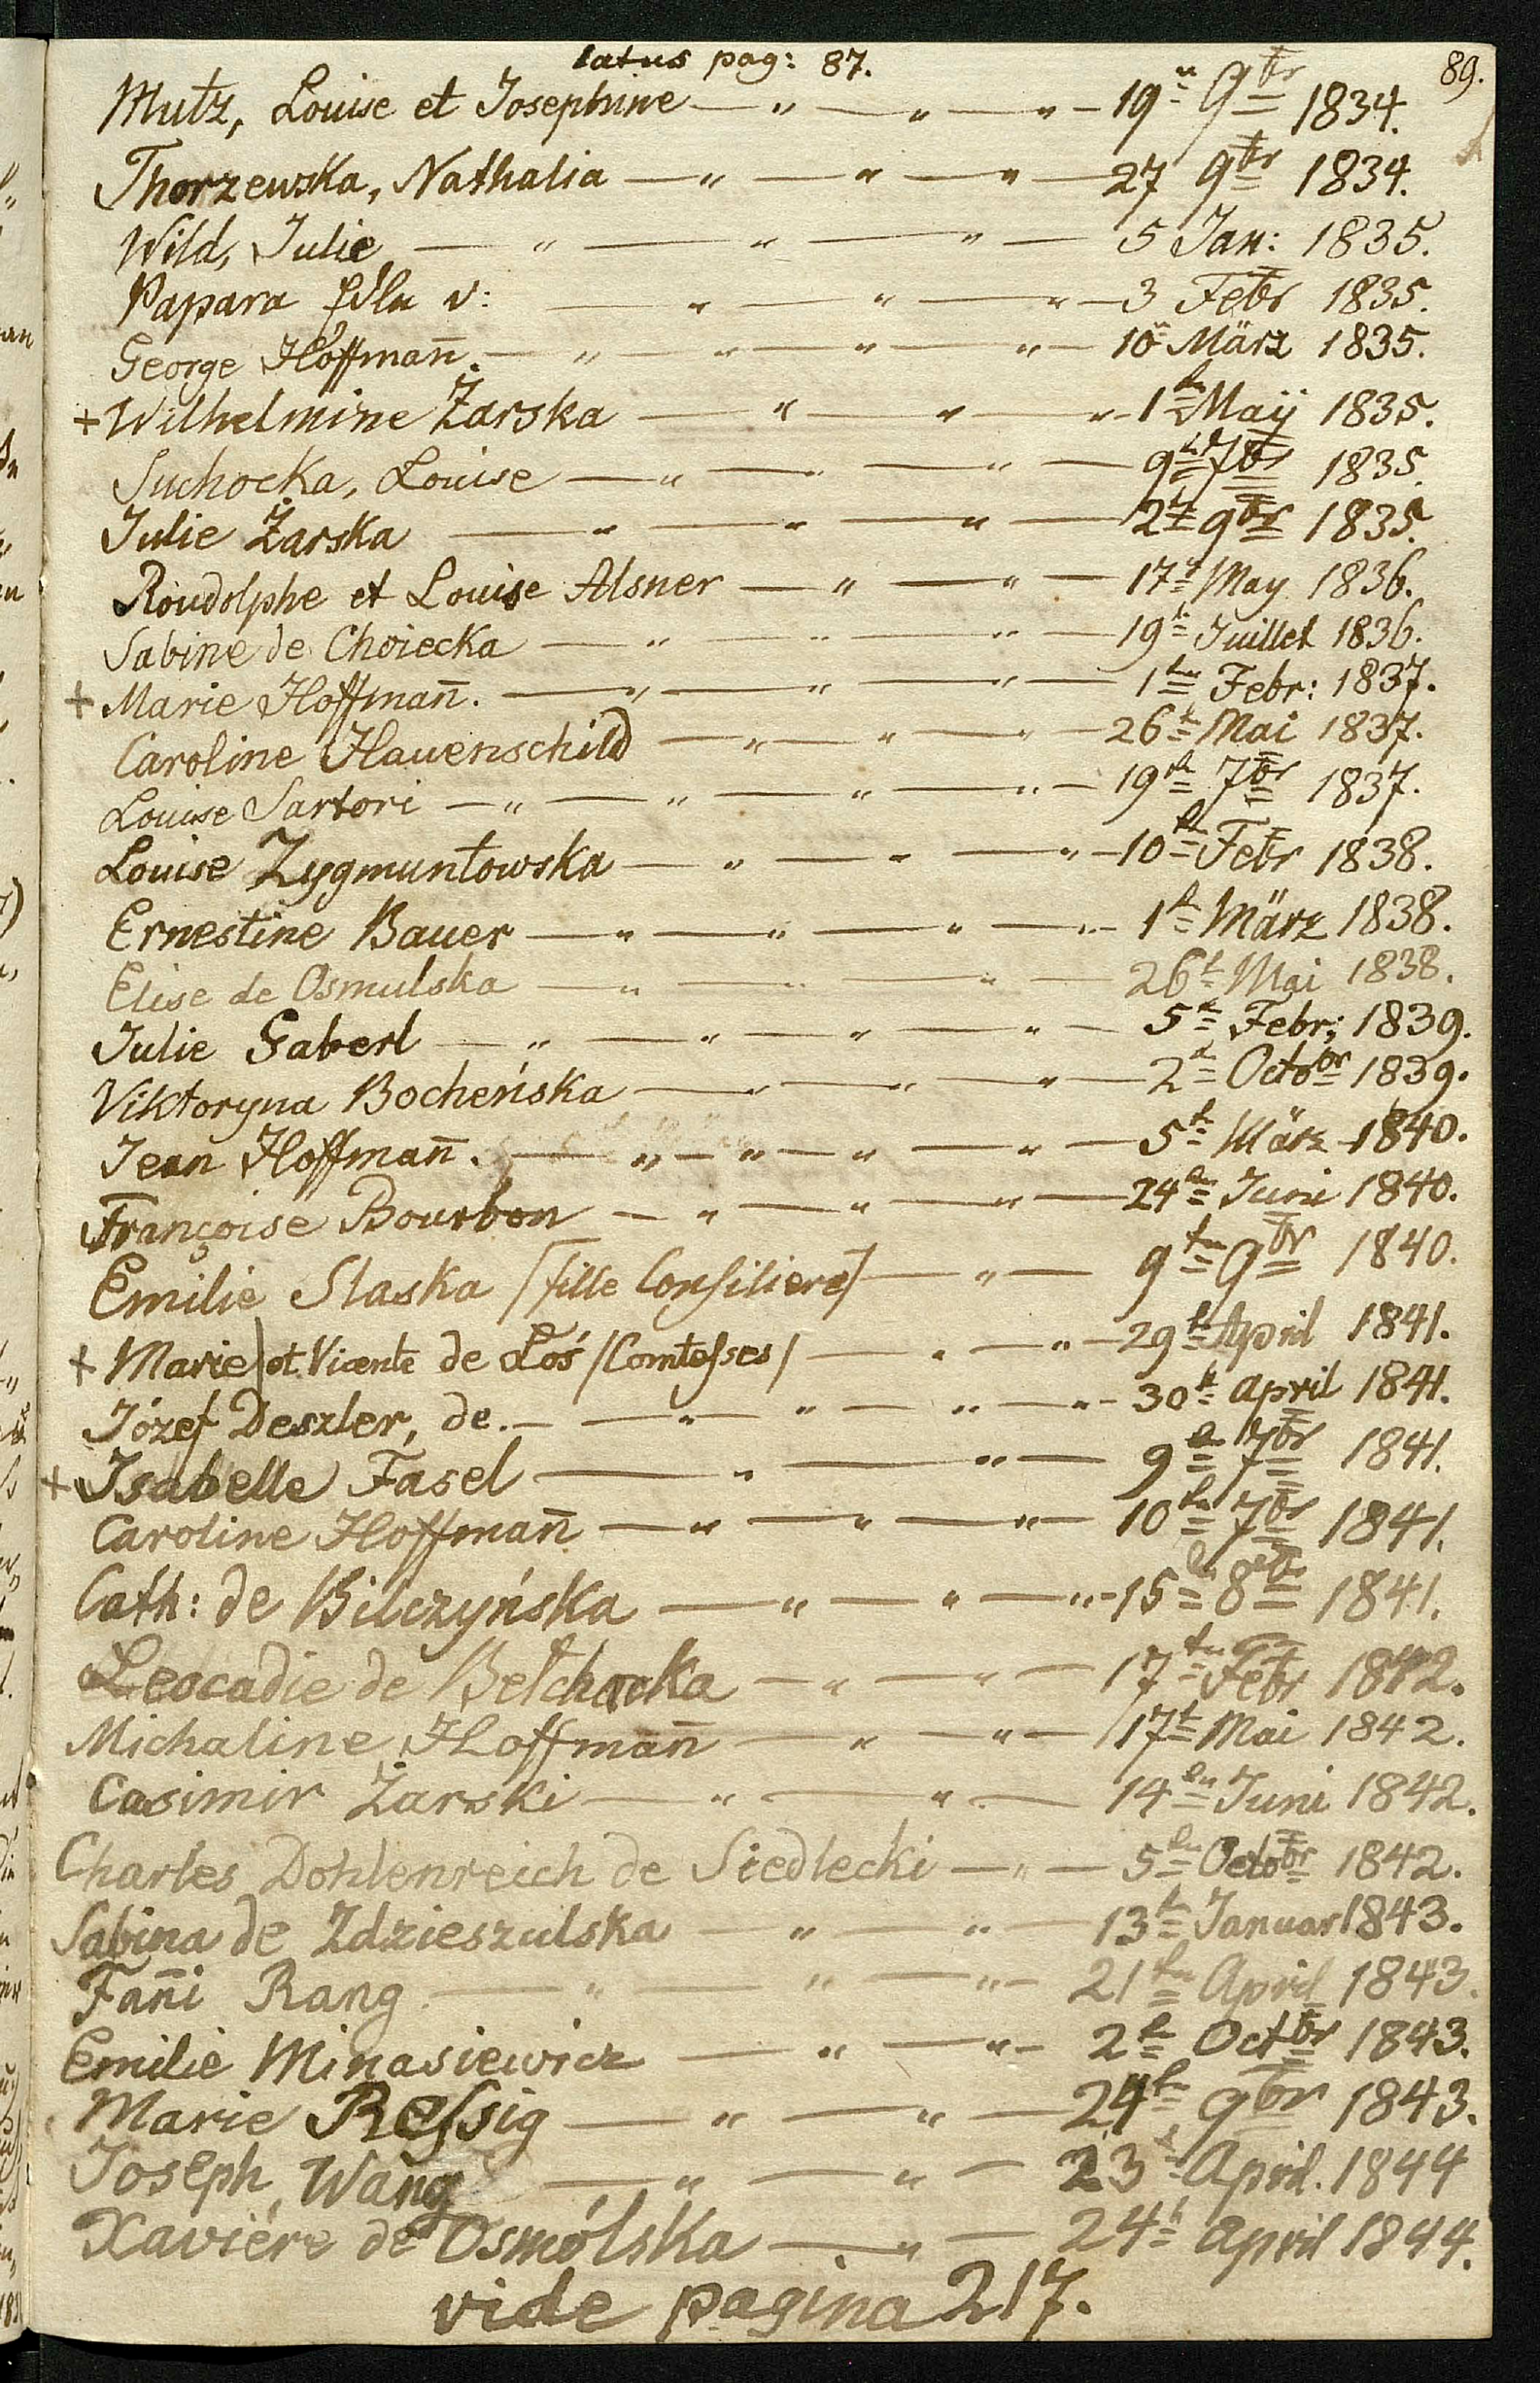 latus pag: 87.
89.
Mutz, Louise et Josephine — " — " — " — 19n 9br 1834.
Thorzewska, Nathalia — " — " — " — 27 9br 1834.
Wild, Julie — " — " — " — 5 Jan: 1835.
Papara v: — " — " — " — 3 Febr 1835.
George Hoffman̄. — " — " — " — " — 10n März 1835.
+ Wilhelmine Żarska — " — " — " — 1tn Maÿ 1835.
Suchocka, Louise — " — " — " — 9tn 7br 1835.
Julie Żarska — " — " — " — 2t 9br 1835.
Roudolphe et Louise Alsner — " — " — 17t May 1836.
Sabine de Choiecka — " — " — " — 19t Juillet 1836.
+ Marie Hoffman̄. — " — " — " — 1tn Febr: 1837.
Caroline Hauenschild — " — " — " — 26t Mai 1837.
Louise Sartori — " — " — " — " — 19n 7br 1837.
Louise Zygmuntowska — " — " — " — 10tn Febr 1838.
Ernestine Bauer — " — " — " — " — 1t März 1838.
Elise de Osmulska — " — " — " — 26t Mai 1838.
Julie Gaberl — " — " — " — " — 5t Febr; 1839.
Viktoryna Bocheńska — " — " — " — 2t Octobr 1839.
Jean Hoffman̄. — " — " — " — " — 5t März 1840.
Françoise Bourbon — " — " — " — 24tn Juni 1840.
Emilie Slaska /fille Consiliere/ — " — 9tn 9br 1840.
+ Marie) et Vicente de Łoś /Comtesses/ — " — " — 29t April 1841.
Józef Deszler, de. — " — " — " — " — 30t April 1841.
+ Isabelle Fasel — " — " — 9tn 7br 1841.
Caroline Hoffman̄ — " — " — " — 10tn 7br 1841.
Cath: de Bilczyńska — " — " — " — 15tn 8br 1841.
Leocadie de Bełchacka — " — " — 17tn Febr 1842.
Michaline Hoffman̄ — " — " — 17t Mai 1842.
Casimir Żarski — " — " — 14tn Juni 1842.
Charles Dohlenreich de Siedlecki — " — 5tn Octobr 1842.
Sabina de Zdzieszulska — " — " — 13t Januar 1843.
Fan̄i Rang — " — " — " — 21tn April 1843.
Emilie Minasiewicz — " — " — 2t Octbr 1843.
Marie Ressig — " — " — 24t 9br 1843.
Joseph Wang — " — " — 23t April. 1844
Xaviére de Osmólska — " — 24t April 1844.
vide pagina 217.